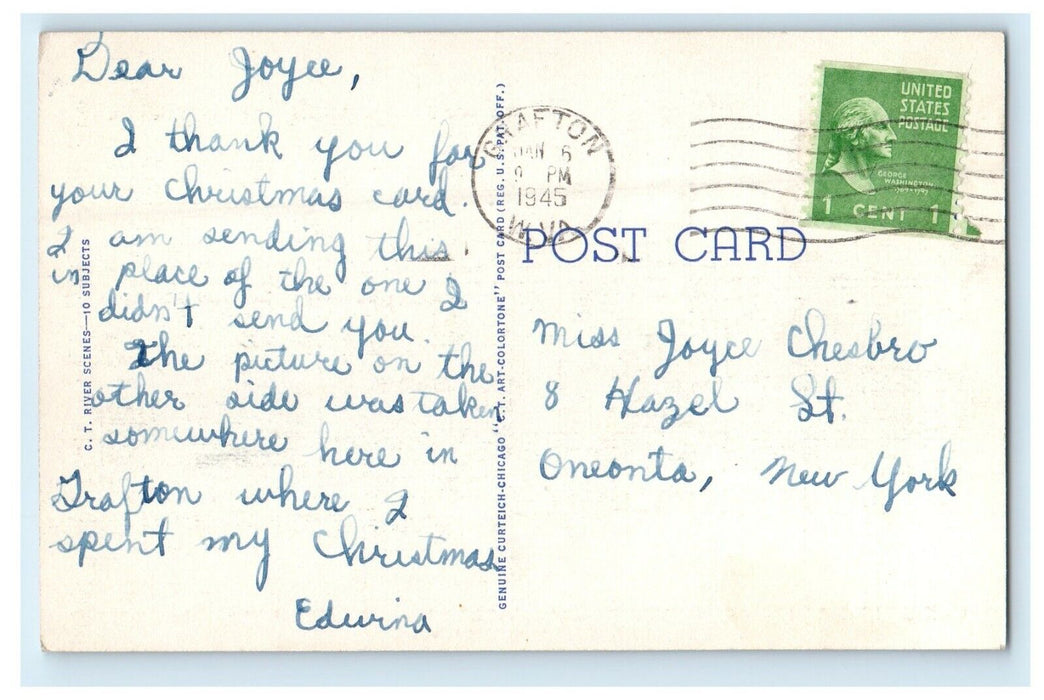 Dear Joyce,
I thank you for
your Christmas card.
I am sending this
in place of the one I
didn't send you.
The picture on the
other side was taken
somewhere here in
Grafton where I
spent my Christmas
Edwina
C. T. RIVER SCENES—10 SUBJECTS
GENUINE CURTEICH-CHICAGO "C.T. ART-COLORTONE" POST CARD (REG. U.S. PAT. OFF.)
GRAFTON
JAN 6
PM
1945
W.VA
UNITED
STATES
POSTAGE
GEORGE
WASHINGTON
1789-1797
1 CENT 1
POST CARD
Miss Joyce Chesbro
8 Hazel St.
Oneonta, New York